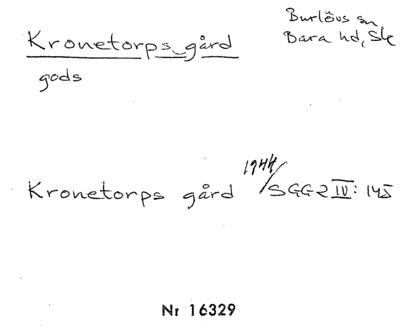 Kronetorps gård
Burlövs sn
Bara hd, Ske
gods
Kronetorps gård 1944/SGG2 IV: 145
Nr 16329